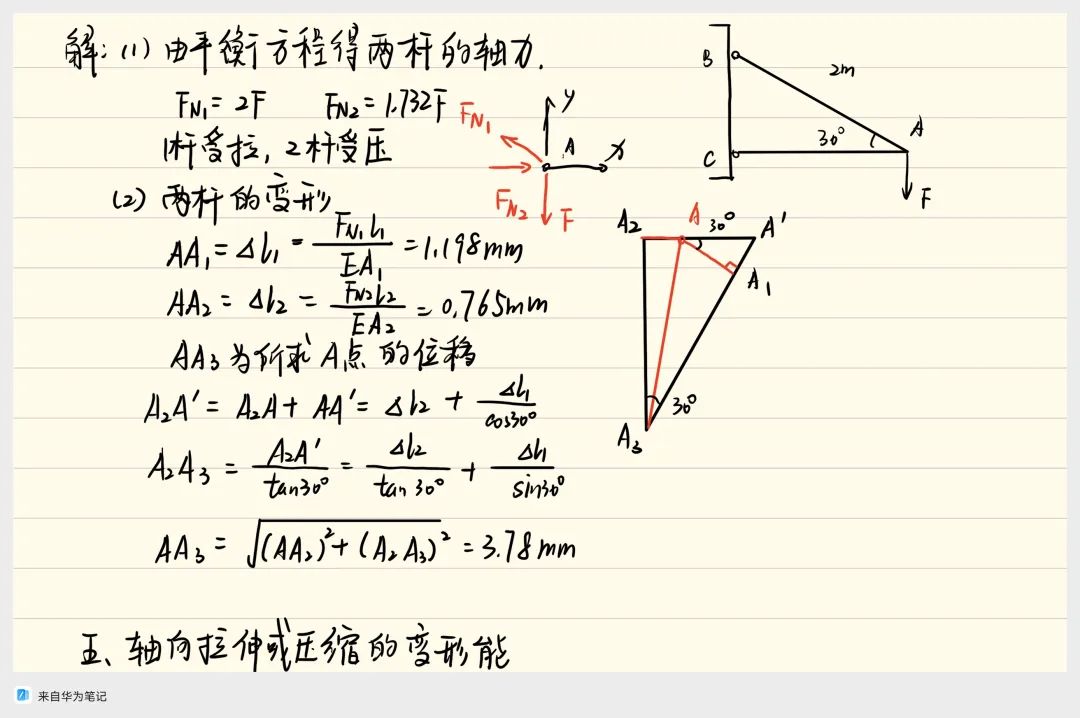 解:(1)由平衡方程得两杆的轴力.
FN1=2F FN2=1.732F
1杆受拉,2杆受压
(2)两杆的变形
AA1=Δl1=FN1l1/EA1=1.198mm
AA2=Δl2=FN2l2/EA2=0.765mm
AA3为所求A点的位移
A2A'=A2A+AA'=Δl2+Δl1/cos30°
A2A3=A2A'/tan30°=Δl2/tan30°+Δl1/sin30°
AA3=√(AA2)²+(A2A3)²=3.78mm
五、轴向拉伸或压缩的变形能
y
FN1
A
x
FN2
F
B
2m
30°
A
C
F
A2
A
30°
A'
A1
30°
A3
来自华为笔记